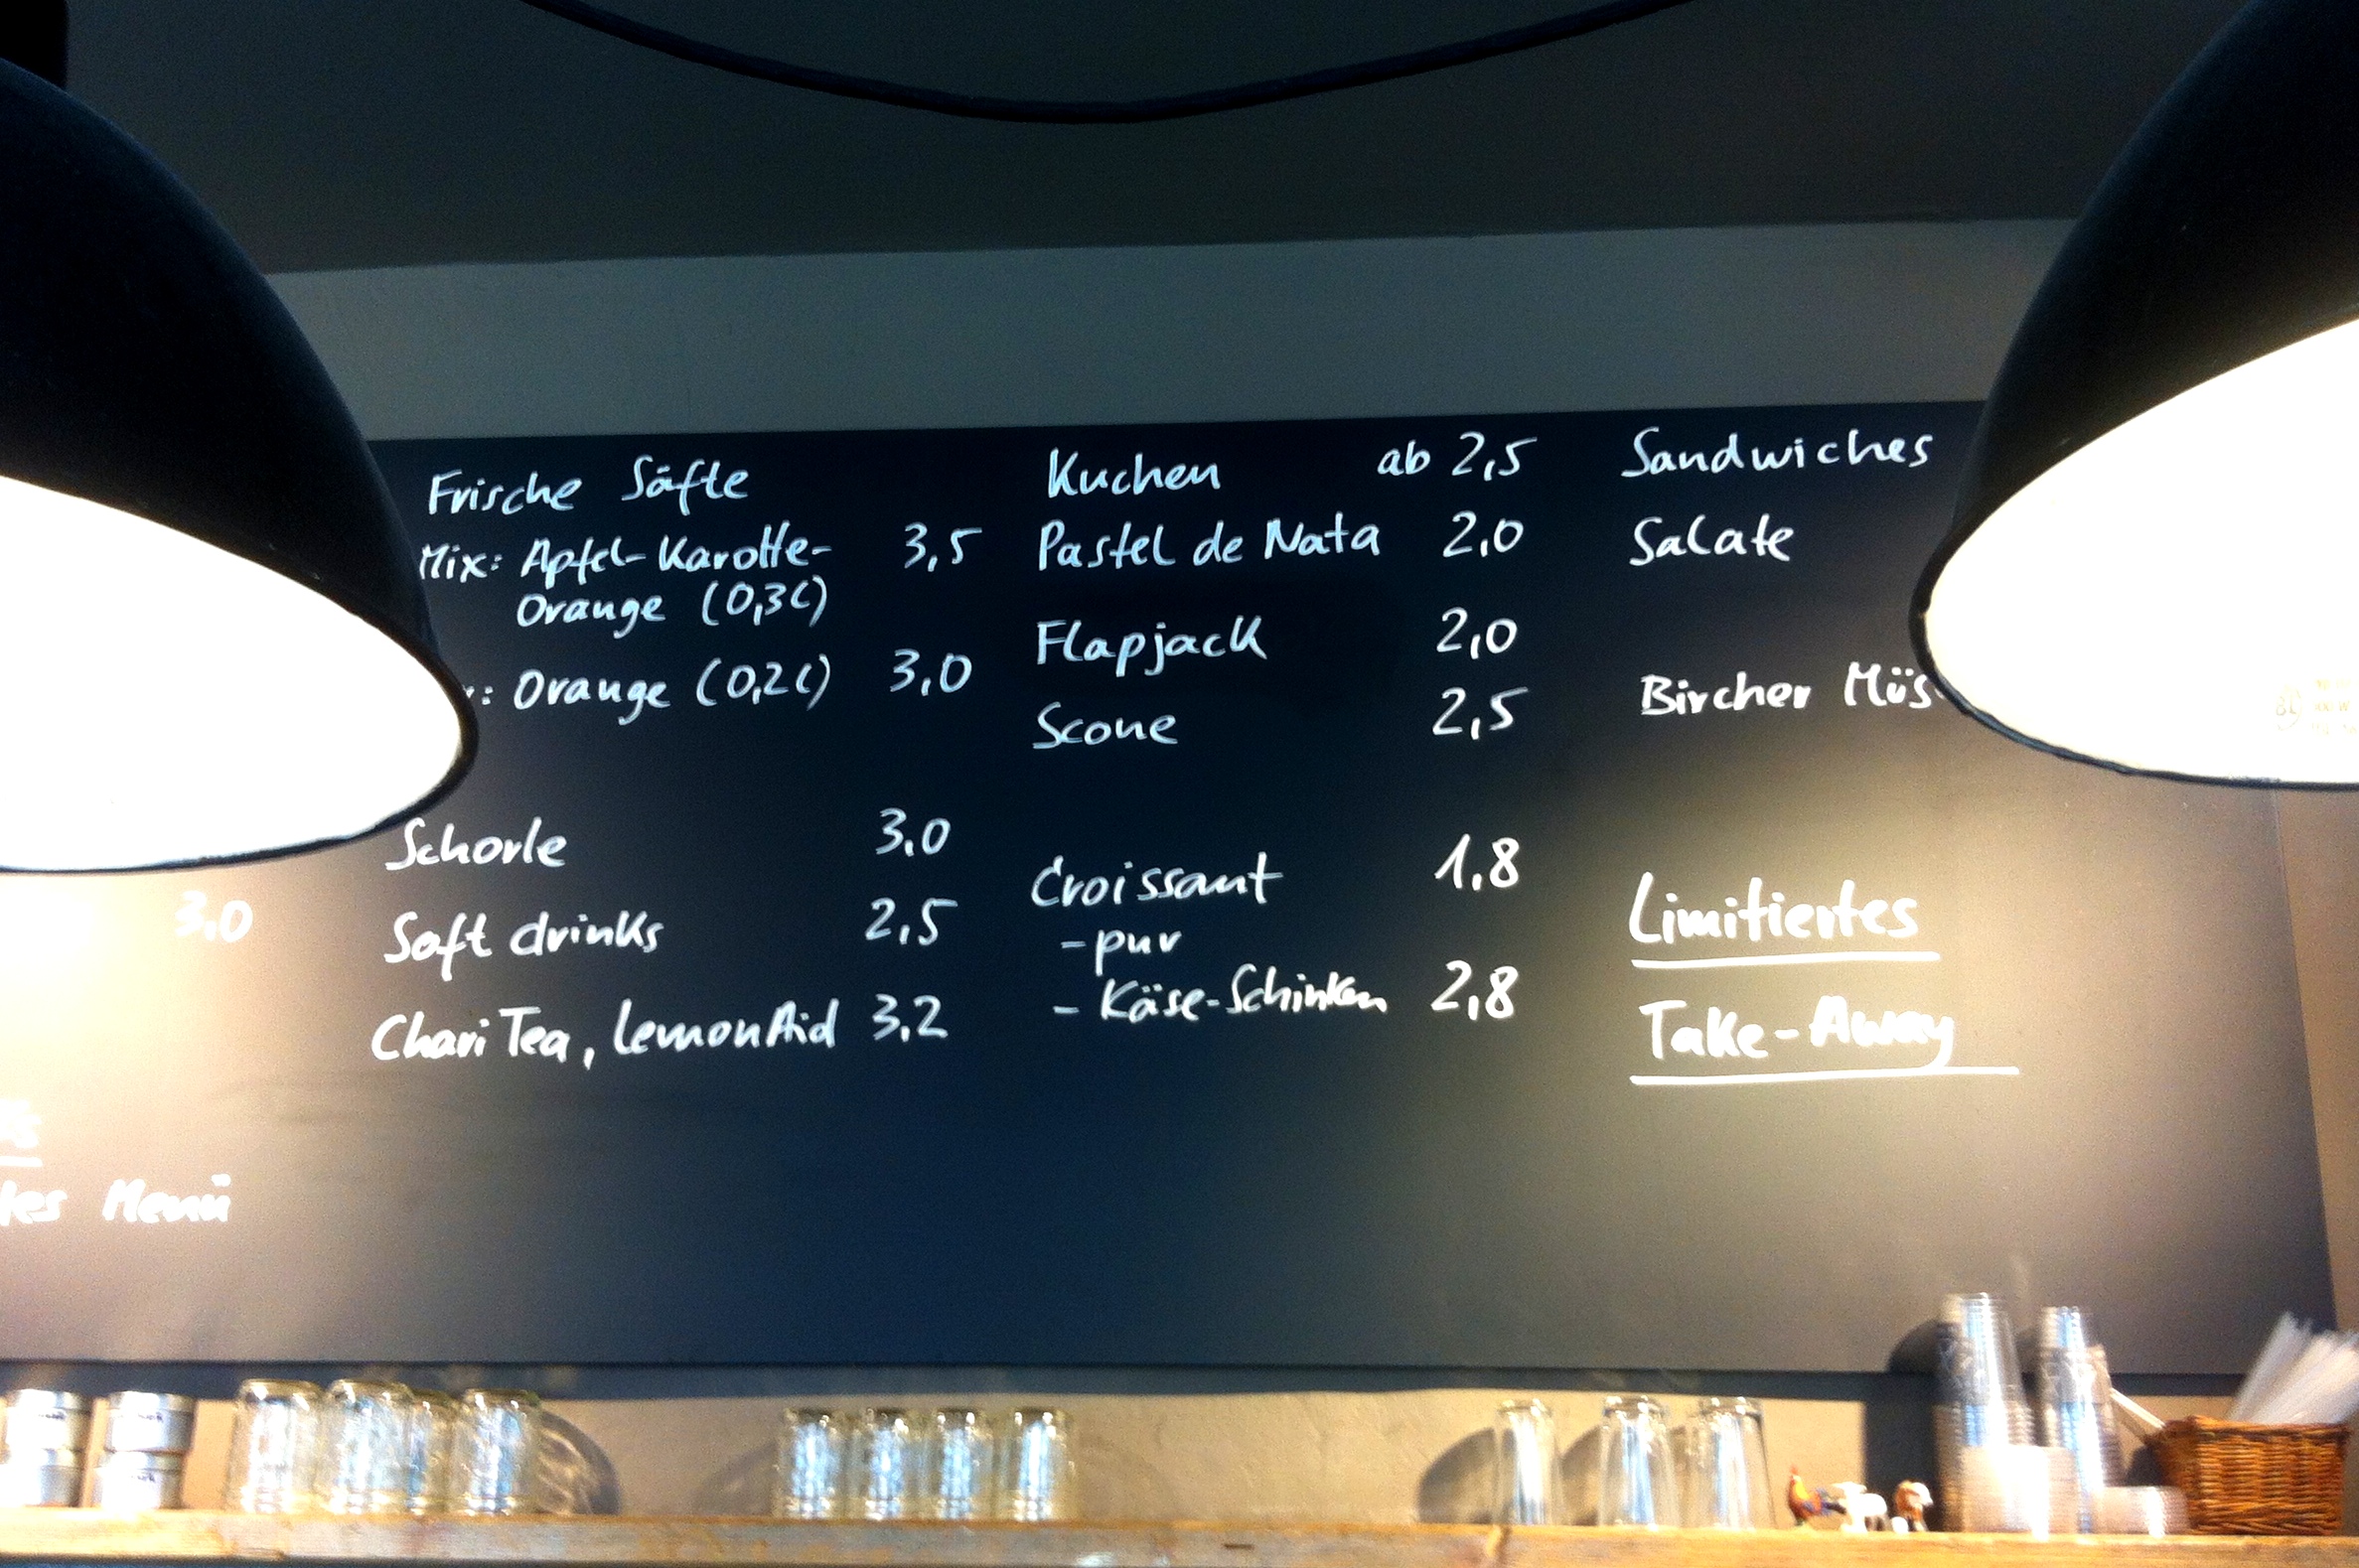 Frische Säfte
Mix: Apfel-Karotte- 3,5
Orange (0,3l)
: Orange (0,2l) 3,0
Schorle 3,0
Soft drinks 2,5
ChariTea, LemonAid 3,2
Kuchen ab 2,5
Pastel de Nata 2,0
Flapjack 2,0
Scone 2,5
Croissant 1,8
- pur
- Käse-Schinken 2,8
Sandwiches
Salate
Bircher Müs
Limitiertes
Take-Away
3,0
tes Menü